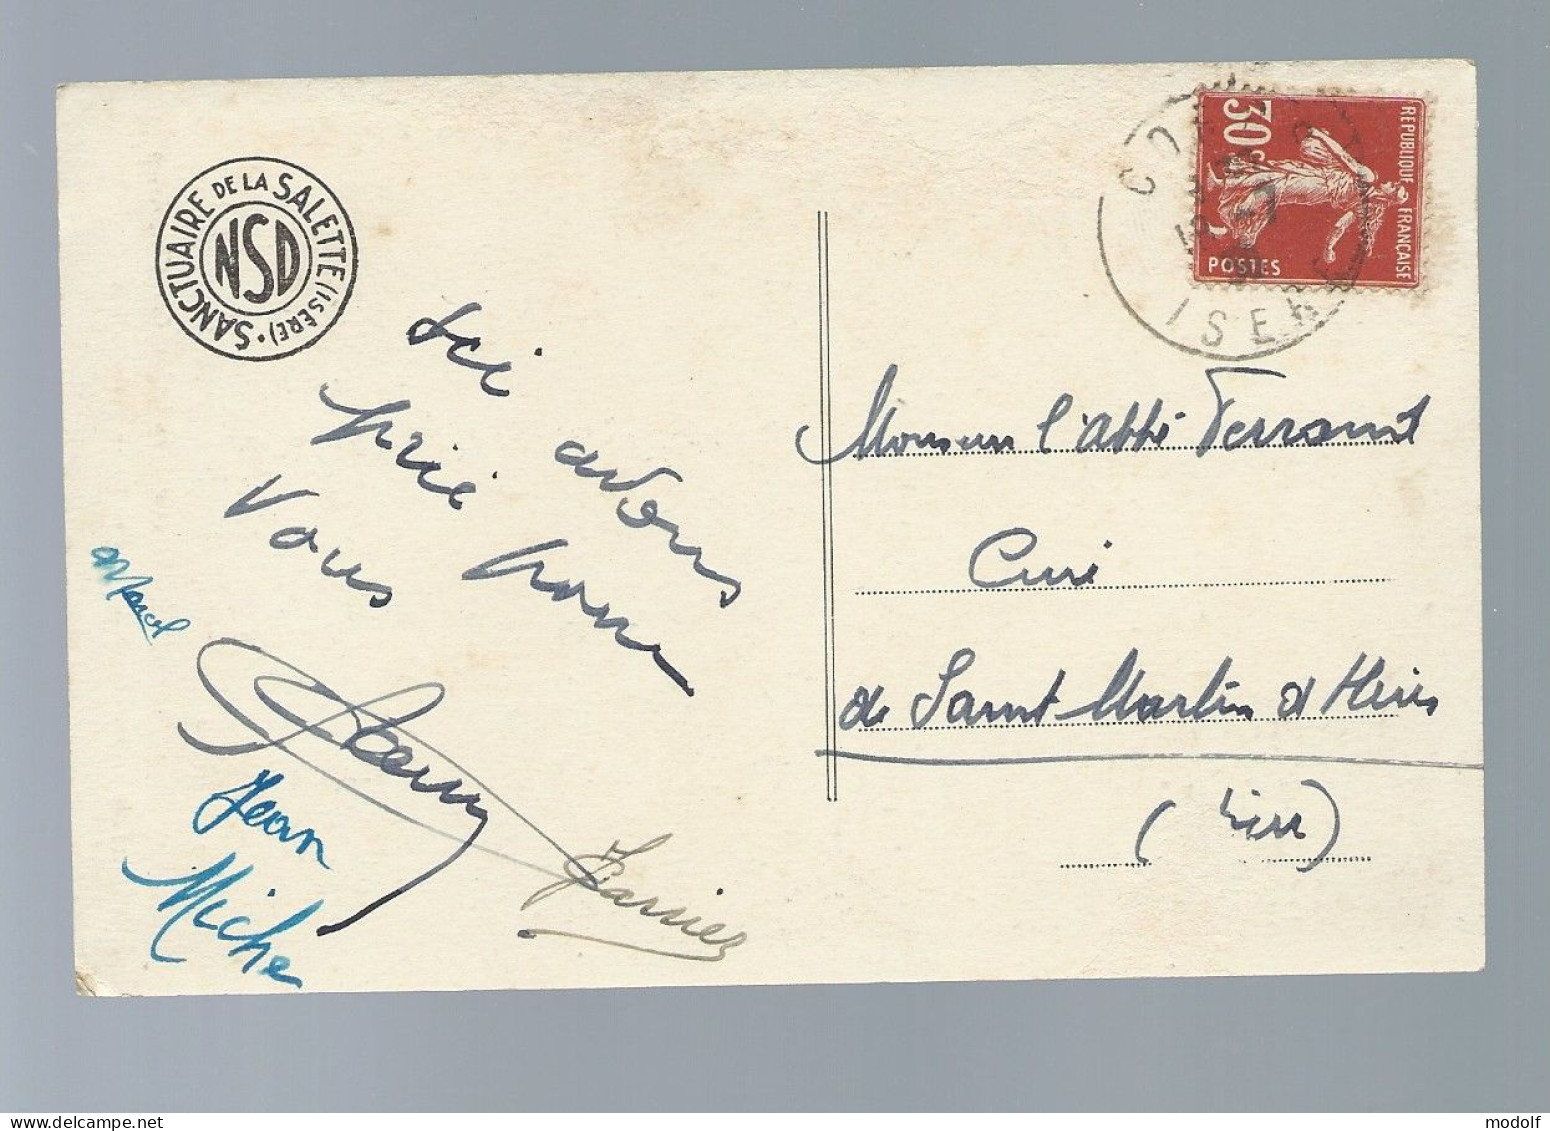 SANCTUAIRE DE LA SALETTE (ISÈRE).
NSD
Ici avons
prié pour
vous
Marcel
Jean
Miche
30c
REPUBLIQUE FRANÇAISE
POSTES
ISERE
Monsieur l'abbé Ferrant
Curé
de Saint Martin d'Hères
(Isère)
modolf